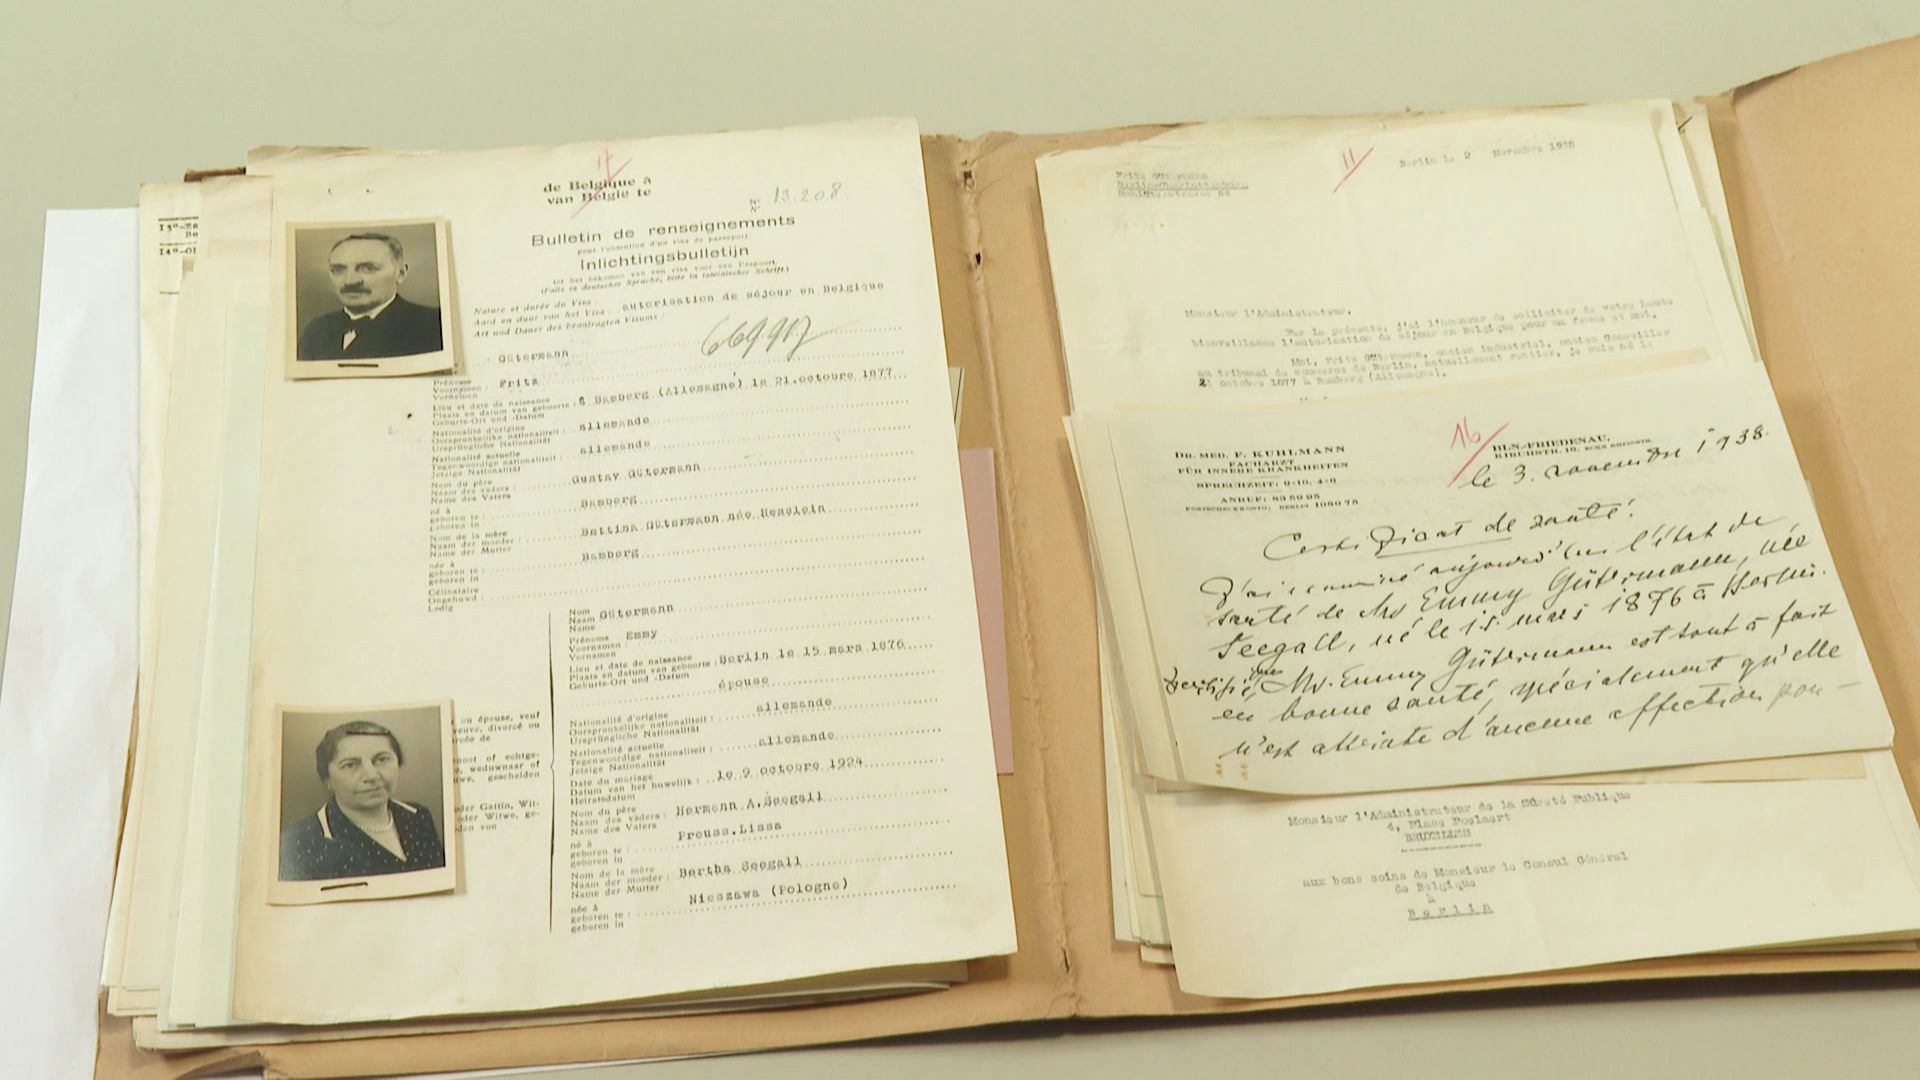 13º-
14º-
17
de Belgique à
van België te
Nº 13.208
Nº
Bulletin de renseignements
pour l'obtention d'un visa de passeport.
Inlichtingsbulletijn
tot het bekomen van een visa voor een Paspoort.
(Falls in deutscher Sprache, bitte in lateinischer Schrift.)
Nature et durée du Visa :
Aard en duur van het Visa : autorisation de séjour en Belgique
Art und Dauer des beantragten Visums :
669917
Gütermann
Prénoms
Voornamen : Fritz
Vornamen
Lieu et date de naissance
Plaats en datum van geboorte : à Bamberg (Allemagne) le 21.octobre 1877
Geburts-Ort und -Datum
Nationalité d'origine
Oorspronkelijke nationaliteit : allemande
Ursprüngliche Nationalität
Nationalité actuelle
Tegenwoordige nationaliteit : allemande
Jetzige Nationalität
Nom du père
Naam des vaders : Gustav Gütermann
Name des Vaters
né à
geboren te : Bamberg
geboren in
Nom de la mère
Naam der moeder : Bettina Gütermann née
Name der Mutter
née à
geboren te : Bamberg
geboren in
Célibataire
Ongehuwd :
Ledig
ou épouse, veuf
veuve, divorcé ou
noot of echtge-
weduwnaar of
gescheiden
oder Gattin, Wit-
oder Witwe, ge-
den von
Nom
Naam Gütermann
Name
Prénoms
Voornamen : Emmy
Vornamen
Lieu et date de naissance
Plaats en datum van geboorte : Berlin le 15 mars 1876
Geburts-Ort und -Datum
épouse
Nationalité d'origine
Oorspronkelijke nationaliteit : allemande
Ursprüngliche Nationalität
Nationalité actuelle
Tegenwoordige nationaliteit : allemande
Jetzige Nationalität
Date du mariage
Datum van het huwelijk : le 9 octobre 1924
Heiratsdatum
Nom du père
Naam des vaders : Hermann A.Seegall
Name des Vaters
né à
geboren te : Preuss.Lissa
geboren in
Nom de la mère
Naam der moeder : Bertha Seegall
Name der Mutter
née à
geboren te : Nieszawa (Pologne)
geboren in
Fritz Gütermann
Berlin-Charlottenburg
11
Berlin le 2 Novembre 1938
Monsieur l'Administrateur,
Par la présente, j'ai l'honneur de solliciter de votre haute
bienveillance l'autorisation de séjour en Belgique pour ma femme et moi.
Moi, Fritz Gütermann, ancien industriel, ancien Conseiller
au tribunal de commerce de Berlin, actuellement rentier, je suis né le
21 octobre 1877 à Bamberg (Allemagne).
DR. MED. F. KUHLMANN
FACHARZT
FÜR INNERE KRANKHEITEN
SPRECHZEIT: 9-10, 4-6
ANRUF: 83 50 95
POSTSCHECKKONTO: BERLIN 1050 75
16
BLN.-FRIEDENAU,
KIRCHSTR. 16, ECKE RHEINSTR.
le 3. novembre 1938.
Certificat de santé.
J'ai examiné aujourd'hui l'état de
santé de Mme Emmy Gütermann, née
Seegall, né le 15. mars 1876 à Berlin.
Mme. Emmy Gütermann est tout à fait
en bonne santé, spécialement qu'elle
n'est atteinte d'aucune affection
Monsieur l'Administrateur de la Sûreté Publique
4, Place Poelaert
BRUXELLES
aux bons soins de Monsieur le Consul Général
de Belgique
à
Berlin